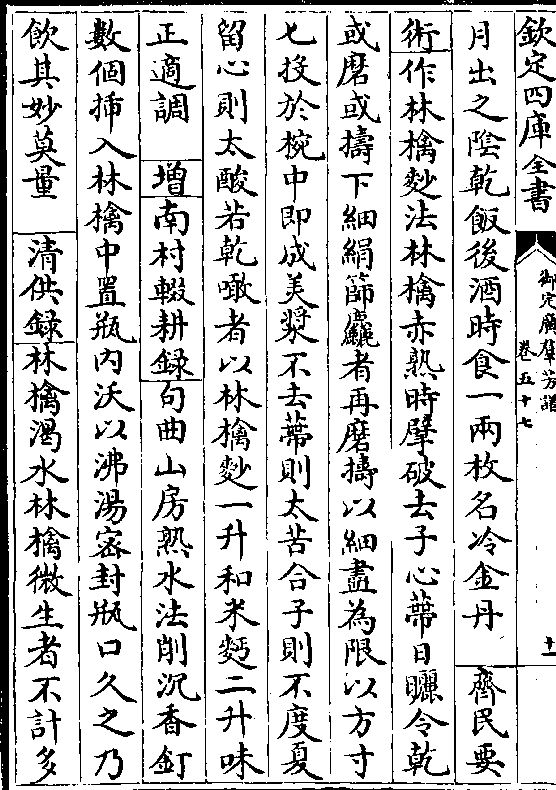 欽定四庫全書
御定廣羣芳譜
卷五十七
十一
月出之陰乾飯後酒時食一兩枚名冷金丹 齊民要
術作林檎麨法林檎赤熟時擘破去子心蔕日曬令乾
或磨或擣下細絹篩麤者再磨擣以細盡為限以方寸
匕投於椀中即成美漿不去蔕則太苦合子則不度夏
留心則太酸若乾噉者以林檎麨一升和米麪二升味
正適調 增南村輟耕録句曲山房熟水法削沉香釘
數個揷入林檎中置瓶内沃以沸湯宻封瓶口久之乃
飲其妙莫量 清供録林檎渴水林檎微生者不計多